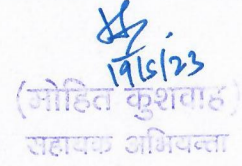 19/5/23
(मोहित कुशवाह)
सहायक अभियन्ता